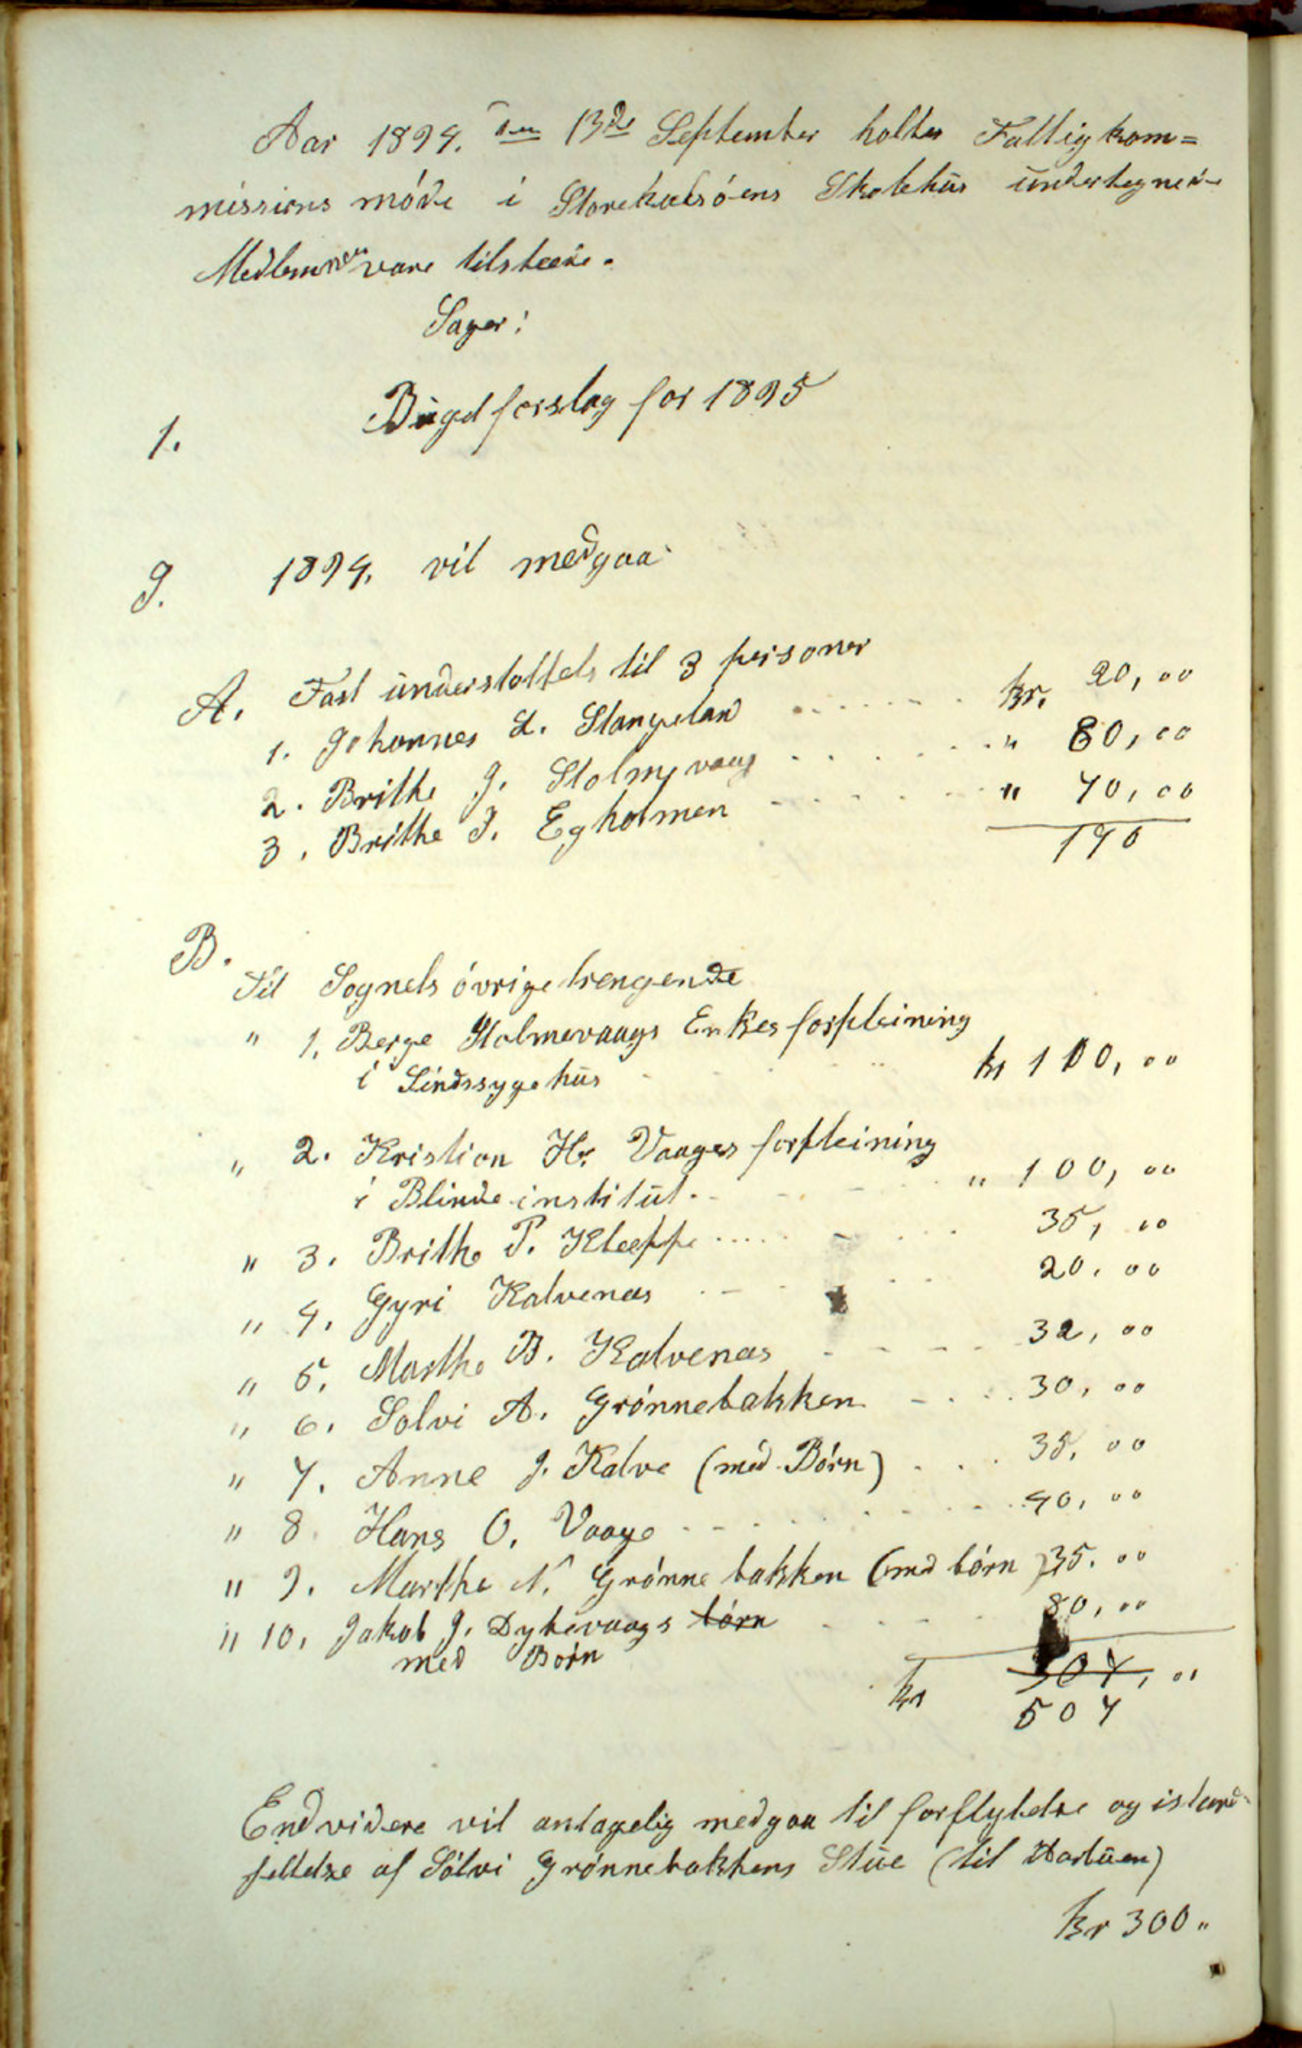 Aar 1894. den 13de September holtes Fattigkom=
missions möde i Storekalsöens Skolehus undertegnede
Medlemmer vare tilstæde.
Sager:
1. Bugdforslag for 1895
I. 1894. vil medgaa
A. Fast understottels til 3 personer
1. Johannes L. Stangeland . . . . . . . kr. 20,00
2. Brithe J. Stolmevaag . . . . . . . " 80,00
3. Brithe I. Egholmen . . . . . . " 70,00
170
B.
Til Sognets övrige trengende
" 1. Berge Stolmevaags Enkes forpleining
i Sindssygehus kr 100,00
" 2. Kristian Hr. Vaages forpleining
i Blinde institut. " 100,00
" 3. Brithe P. Kleppe . . . . . 35,00
" 4. Gyri Kalvenæs . . . 20.00
" 5. Marthe B. Kalvenæs . . . . 32,00
" 6. Solvi A. Grönnebakken . . . 30,00
" 7. Anne J. Kalve (med Börn) . . . 35,00
" 8. Hans O. Vaage . . . . . . 40,00
" 9. Marthe N. Grönnebakken (med börn) 35.00
" 10. Jakob J. Dybevaags börn . . . . 80,00
med Börn
kr 307,00
507
Endvidere vil antagelig medgaa til forflytelse og istand-
settelse af Sölvi Grönnebakkens Stue (til
kr 300"